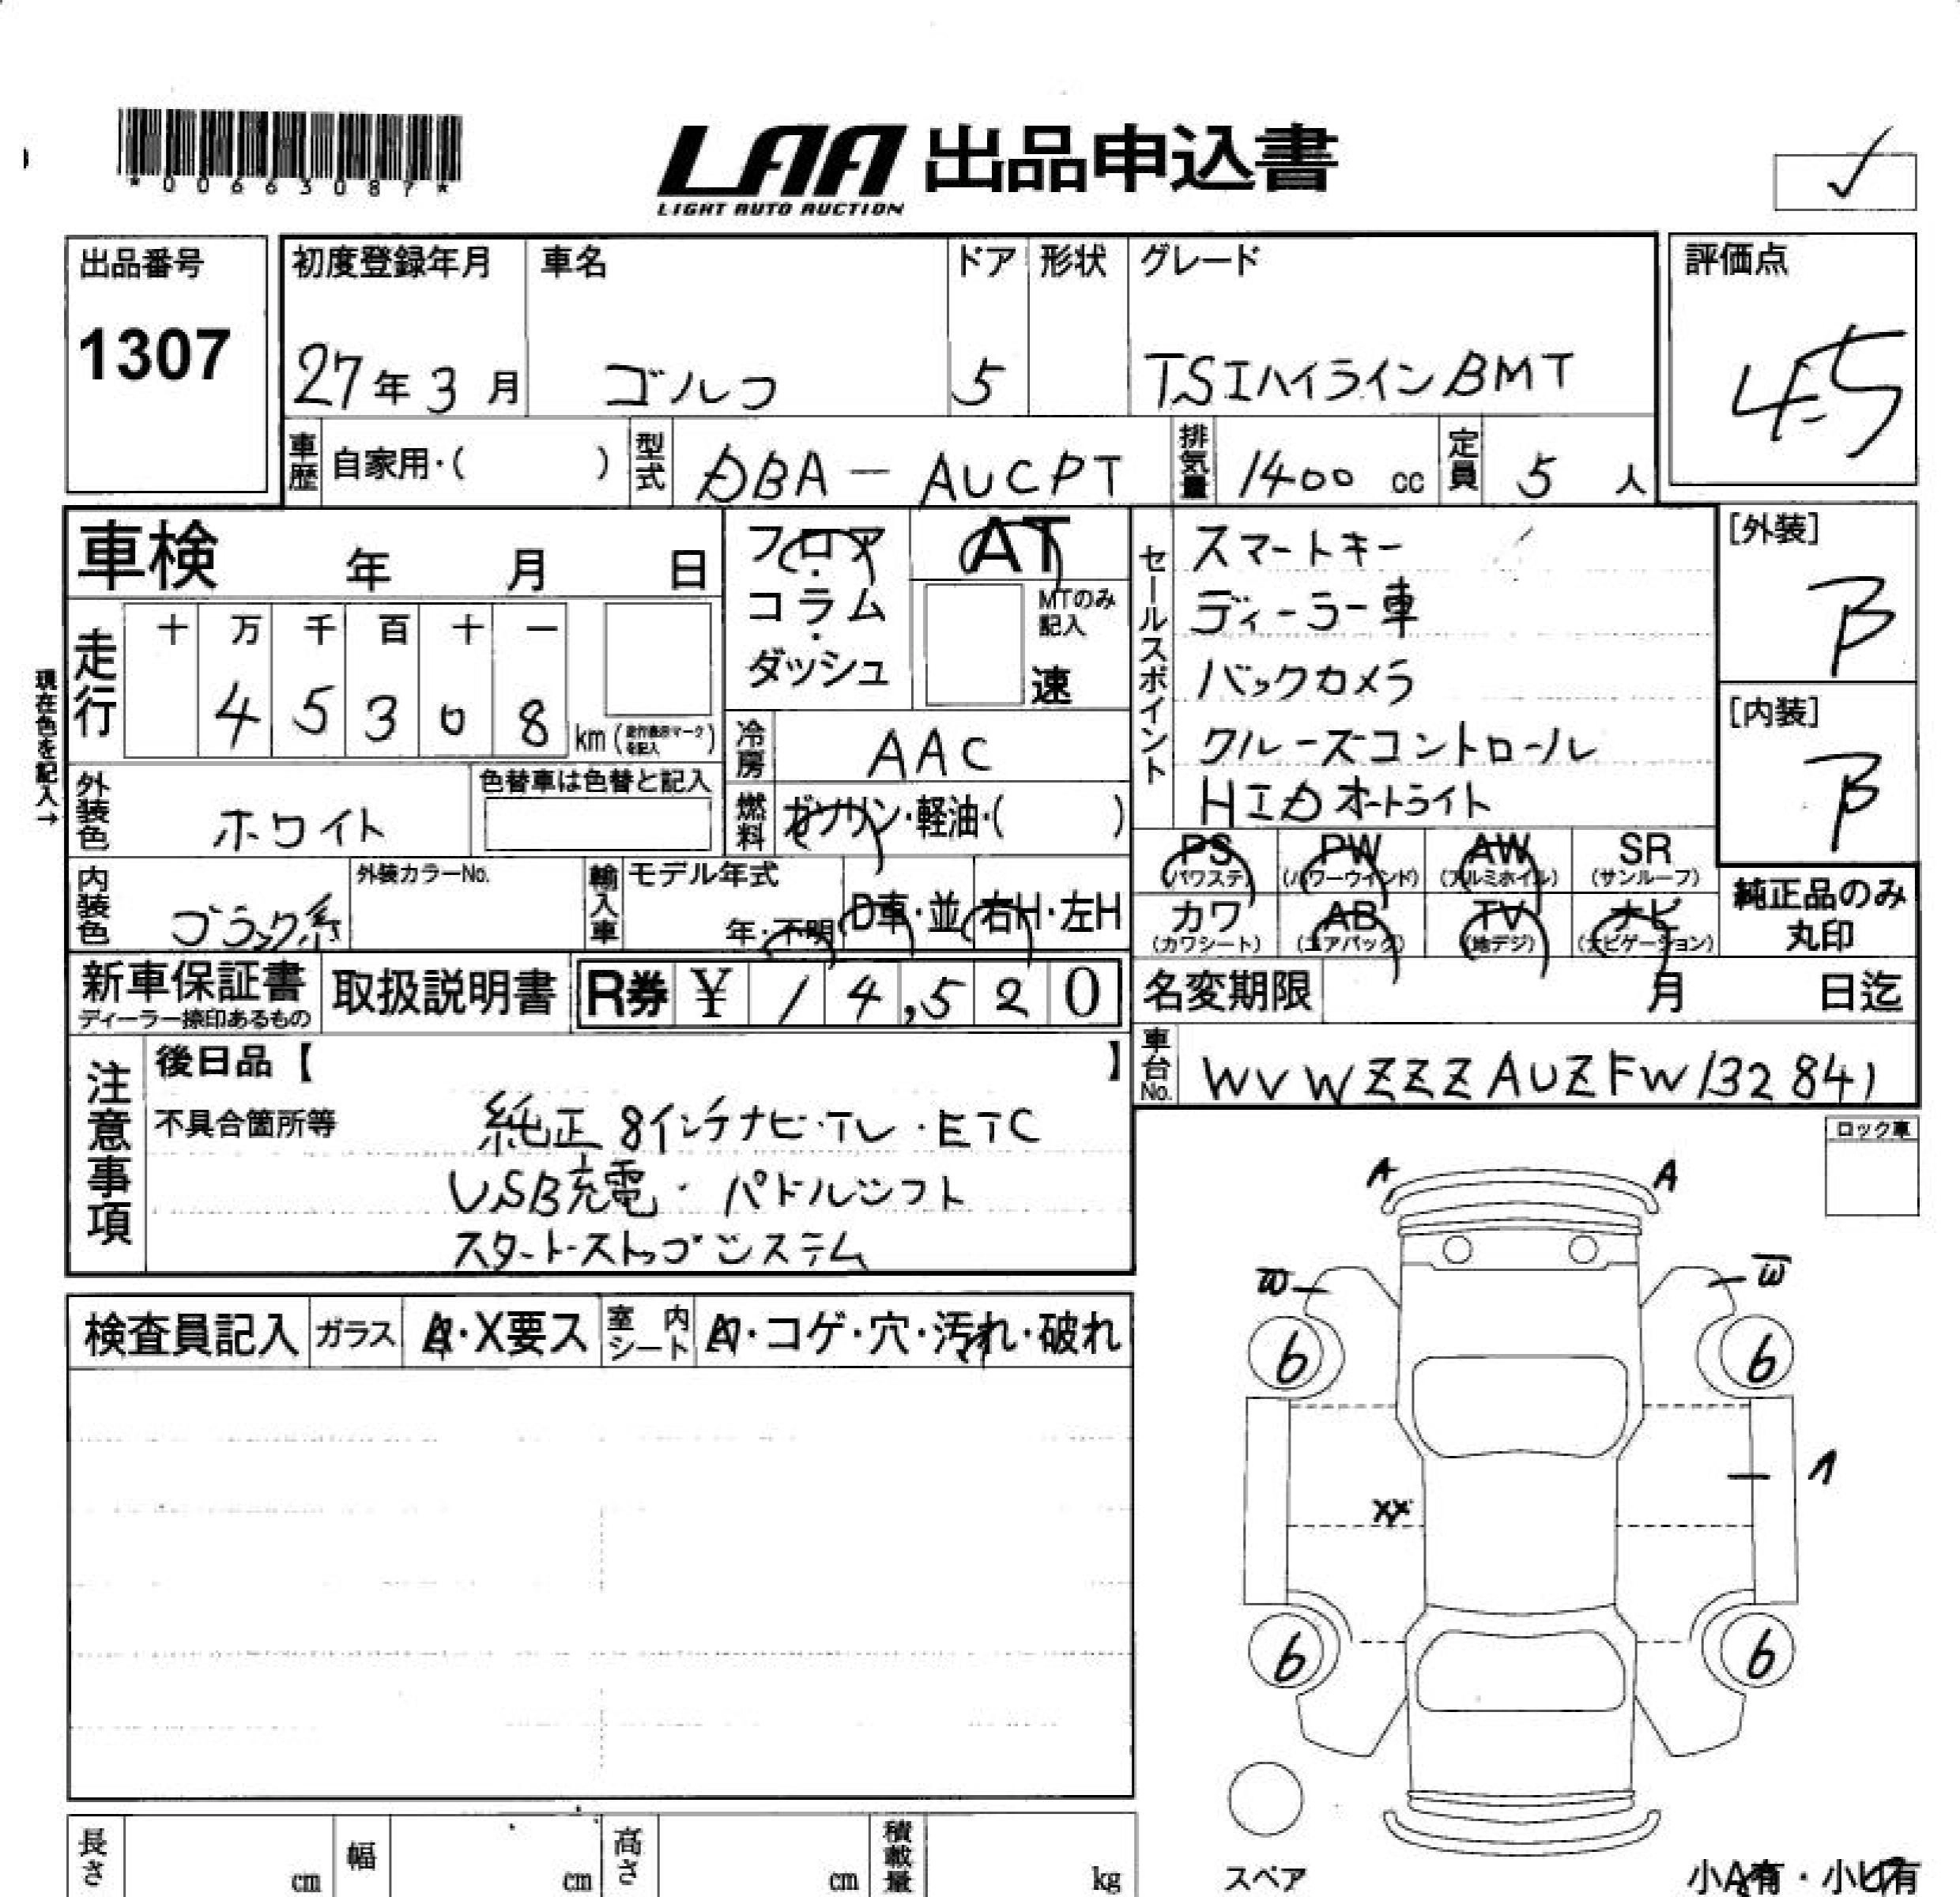 *00663087*
LAA 出品申込書
LIGHT AUTO AUCTION
出品番号
1307
初度登録年月
27年3月
車名
ゴルフ
ドア
5
形状
グレード
TSIハイラインBMT
評価点
4.5
車歴 自家用・( )
型式 DBA-AUCPT
排気量 1400 cc
定員 5 人
車検 年 月 日
フロア・コラム・ダッシュ
AT
MTのみ記入
速
セールスポイント
スマートキー
ディーラー車
バックカメラ
クルーズコントロール
HIDオートライト
[外装]
B
[内装]
B
現在色を記入→
走行
十 万 千 百 十 一
4 5 3 0 8 km
冷房 AAC
燃料 ガソリン・軽油・( )
外装色 ホワイト
色替車は色替と記入
内装色 ブラック系
外装カラーNo.
輸入車
モデル年式
年・不明
D車・並
右H・左H
PS (パワステ)
PW (パワーウインド)
AW (アルミホイル)
SR (サンルーフ)
カワ (カワシート)
AB (エアバック)
TV (地デジ)
ナビ (ナビゲーション)
純正品のみ
丸印
新車保証書
ディーラー捺印あるもの
取扱説明書
R券 ¥ 14,520
名変期限 月 日迄
車台No. WVWZZZAUZFW132841
注意事項
後日品【 】
不具合箇所等
純正8インチナビ・TV・ETC
USB充電・パドルシフト
スタート・ストップシステム
ロック車
A A
W W
6 6
1
XX
6 6
検査員記入 ガラス A・X要ス 室内シート A・コゲ・穴・汚れ・破れ
長さ cm 幅 cm 高さ cm 積載量 kg
スペア
小A有・小U有